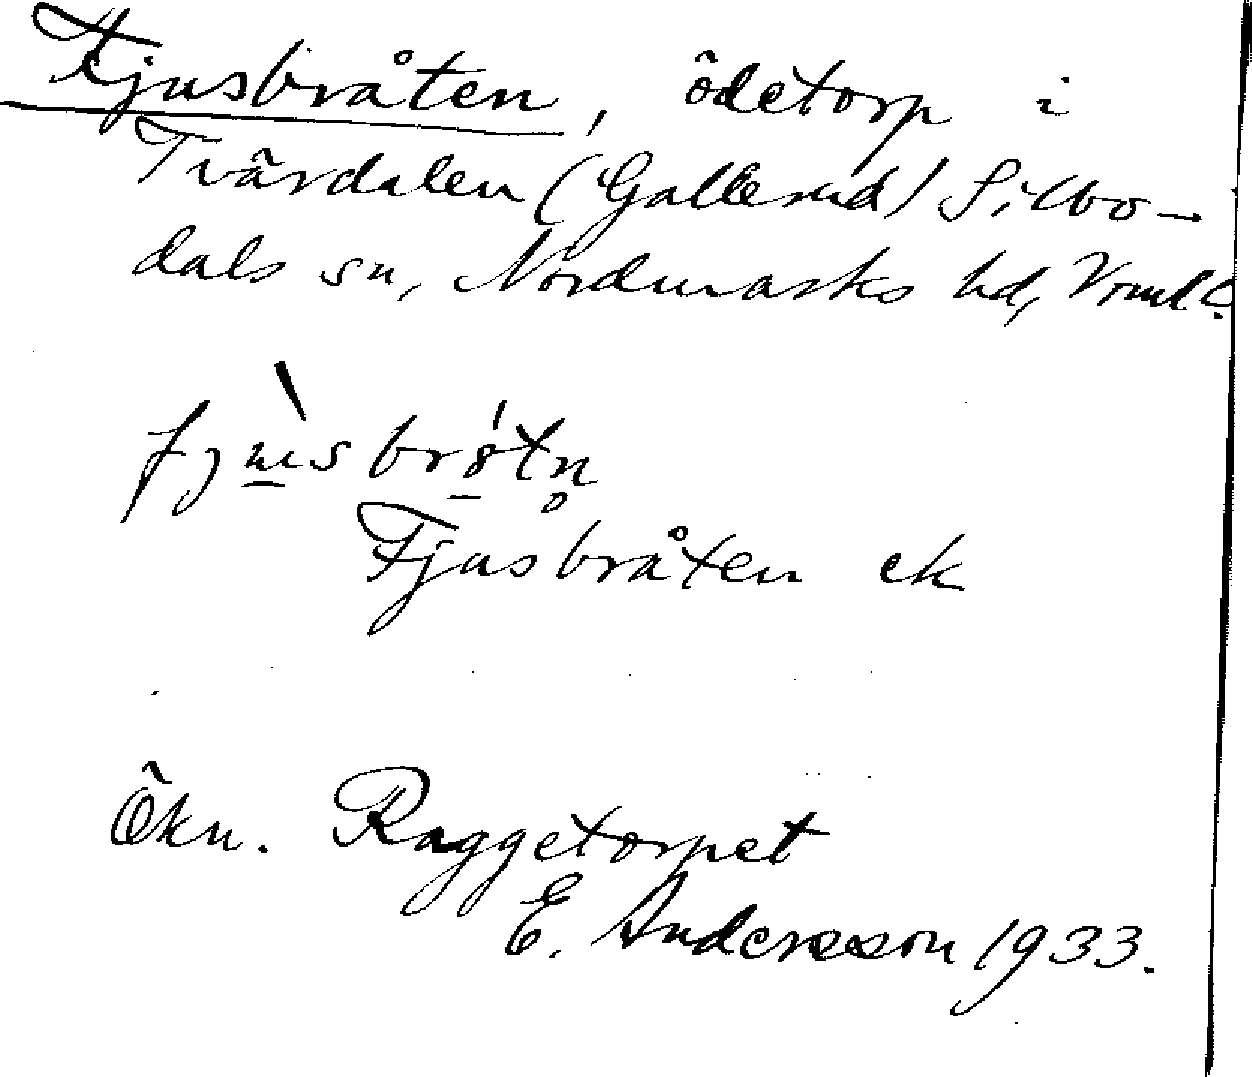 Fjusbråten, ödetorp i
Tvärdalen (Gallerud) Silbo-
dals sn, Nordmarks hd, Vrml.
fjusbrötn
Fjusbråten ek
Ökn. Raggetorpet
E. Andersson 1933.